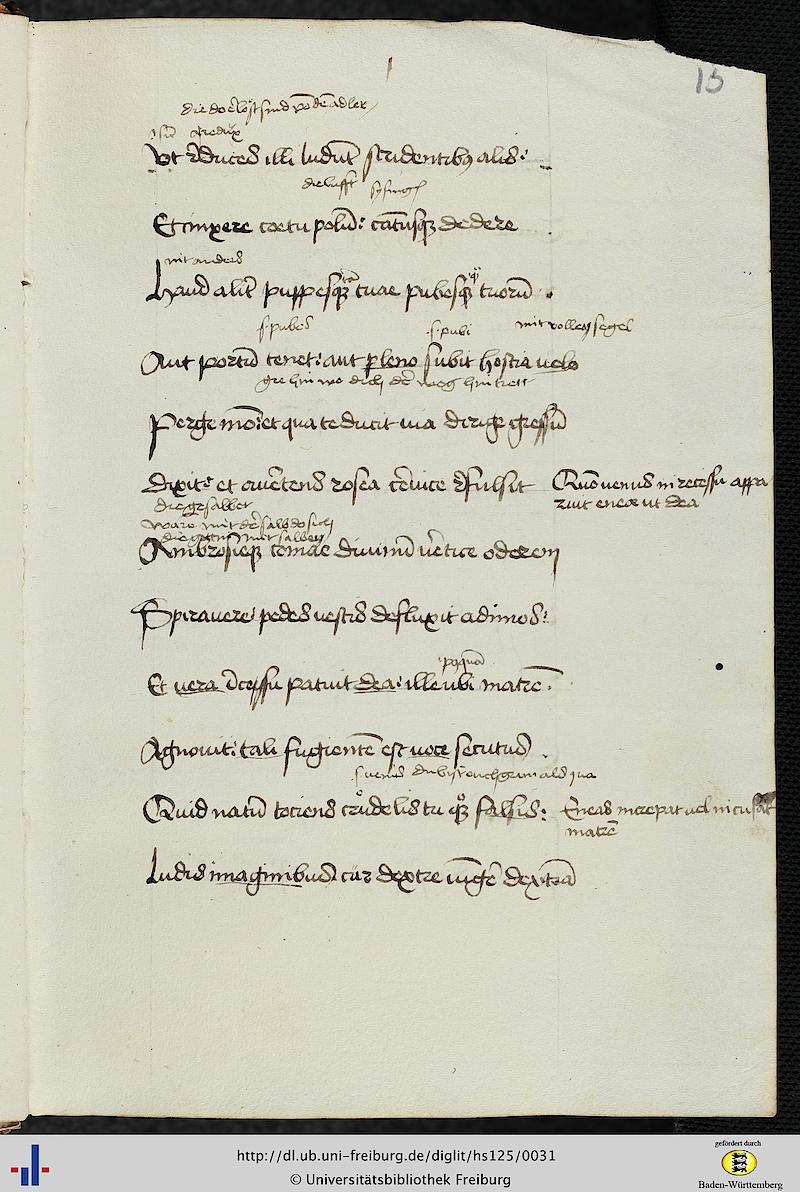 15
die do erlost sind vo de adler
Vt reduces illi ludunt stridentibus alis:
die lufft
Et cinxere coetu polum: cantusque dedere
nit anders
Haud aliter puppesque tuae pubesque tuorum.
s. pubes s. pubi mit vollen segel
Aut portum tenet: aut pleno subit hostia uelo
ge hin wo dich der weg hin
Perge modo: et qua te ducit uia dirige gressum
Dixit: et auertens rosea ceruice refulsit Quo uenus in recessu appa
ruit eneae ut dea
die gesalbet
Ambrosieque comae diuinum uertice odorem
Spirauere: pedes uestis defluxit ad imos:
postquam
Et uera incessu patuit dea: ille ubi matrem:
Agnouit: tali fugientem est uoce secutus.
Quid natum tociens crudelis tu quoque falsis: Eneas increpat uel incusat
matrem
Ludis imaginibus: cur dextre iungere dextram
http://dl.ub.uni-freiburg.de/diglit/hs125/0031
© Universitätsbibliothek Freiburg
gefördert durch
Baden-Württemberg